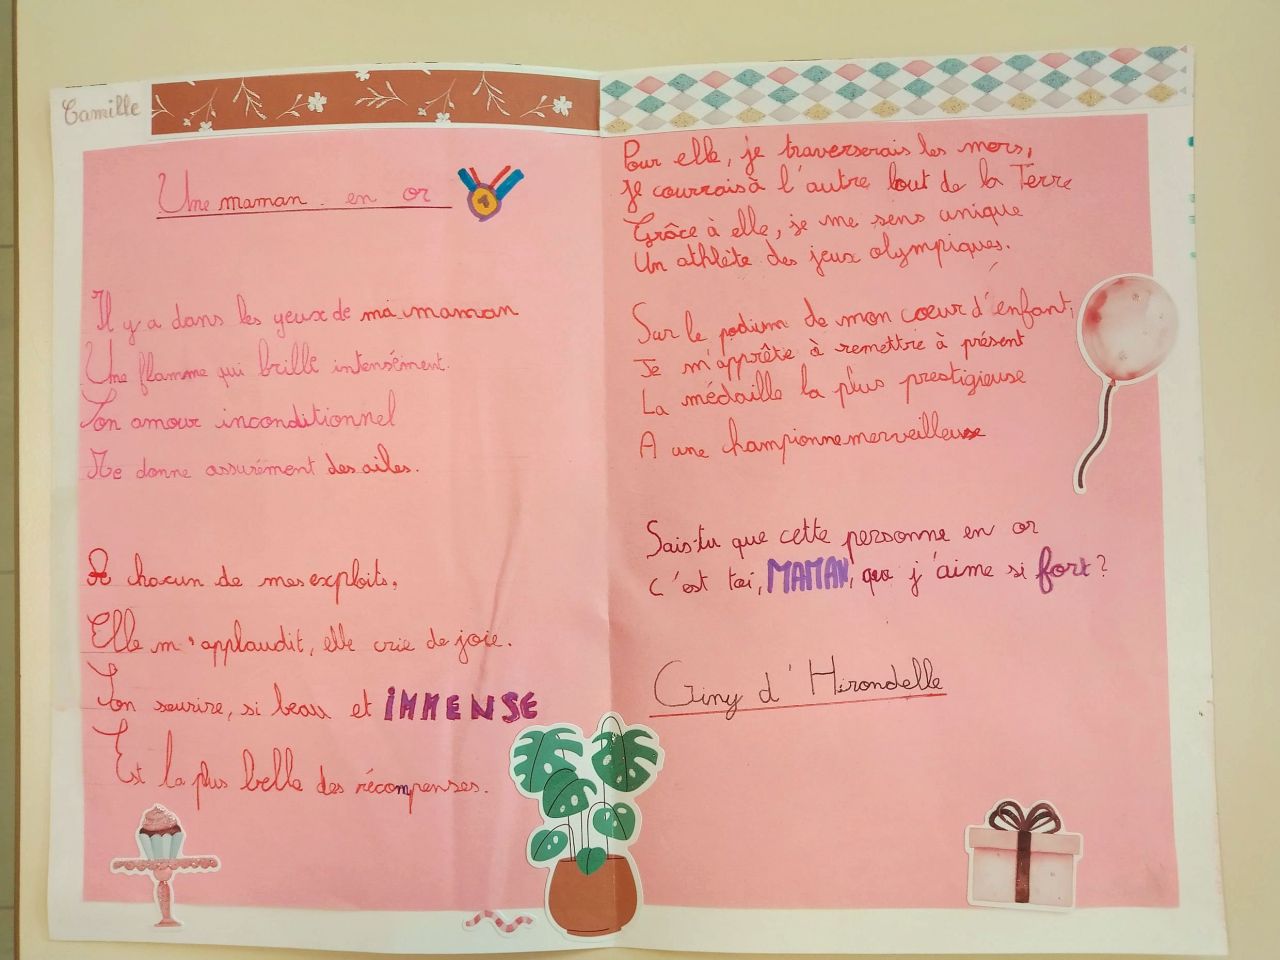 Camille
Une maman en or
1
Il y a dans les yeux de ma maman
Une flamme qui brille intensément.
Son amour inconditionnel
Me donne assurément des ailes.
A chacun de mes exploits,
Elle m'applaudit, elle crie de joie.
Son sourire, si beau et IMMENSE
Est la plus belle des récompenses.
Pour elle, je traverserais les mers,
Je courrais à l'autre bout de la Terre
Grâce à elle, je me sens unique
Un athlète des jeux olympiques.
Sur le podium de mon coeur d'enfant,
Je m'apprête à remettre à présent
La médaille la plus prestigieuse
A une championne merveilleuse
Sais-tu que cette personne en or
C'est toi, MAMAN, que j'aime si fort?
Giny d'Hirondelle